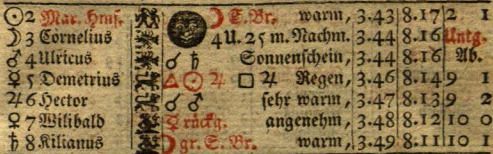 ☉ 2 Mar. Hms. ☽ S. Br. warm, 3.43 8.17 2 1
☽ 3 Cornelius 4 U. 25 m. Nachm. 3.44 8.16 Untg.
♂ 4 Ulricus ☌ ♄ Sonnenschein, 3.44 8.16 Ab.
☿ 5 Demetrius △ ☉ ♃ □ ♃ Regen, 3.46 8.14 9 1
♃ 6 Hector ☌ ♂ sehr warm, 3.47 8.13 9 2
♀ 7 Wilibald ☿ rückg. angenehm, 3.48 8.12 10 0
♄ 8 Kilianus ☽ gr. S. Br. warm, 3.49 8.11 10 1